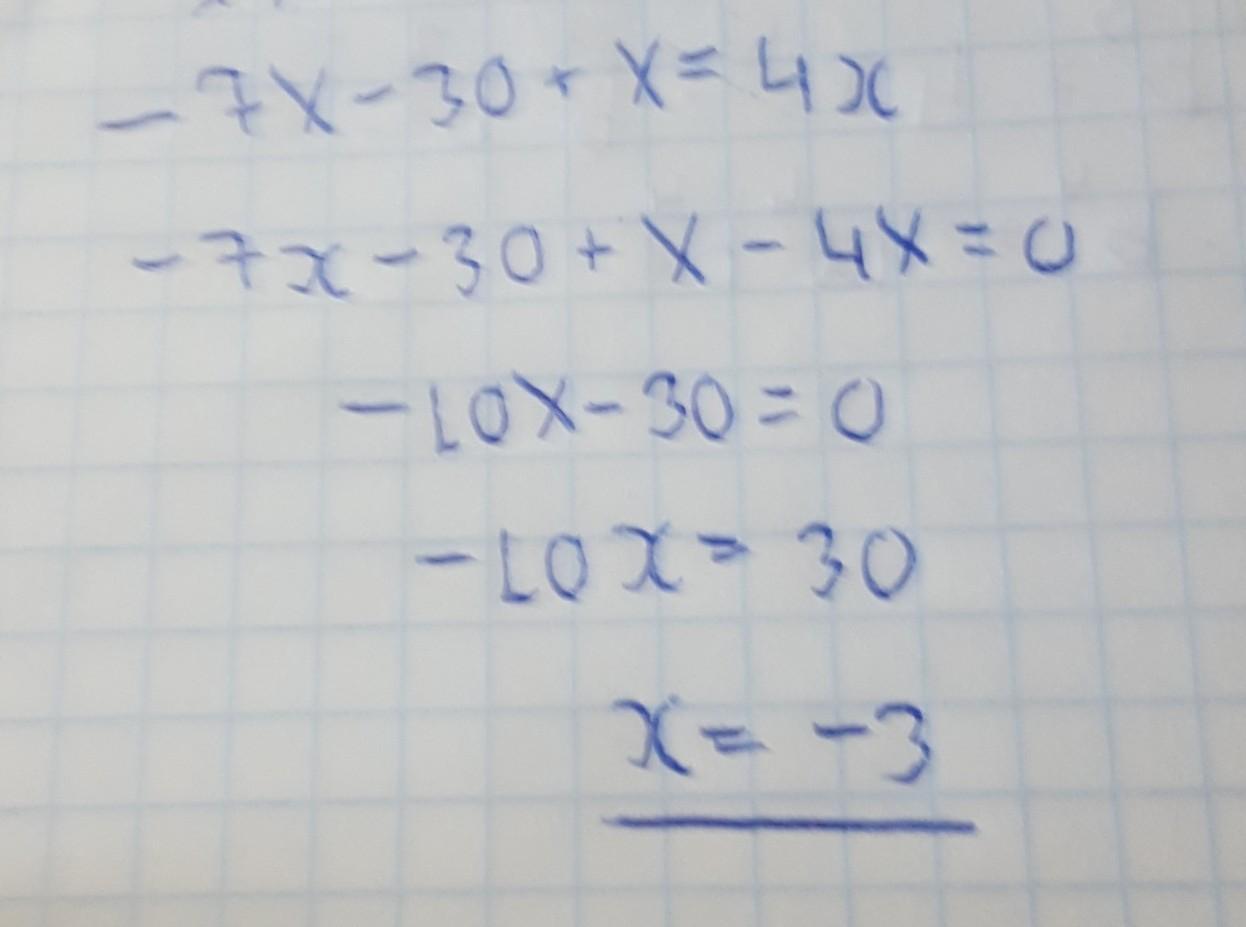 -7x-30+x=4x
-7x-30+x-4x=0
-10x-30=0
-10x=30
x=-3